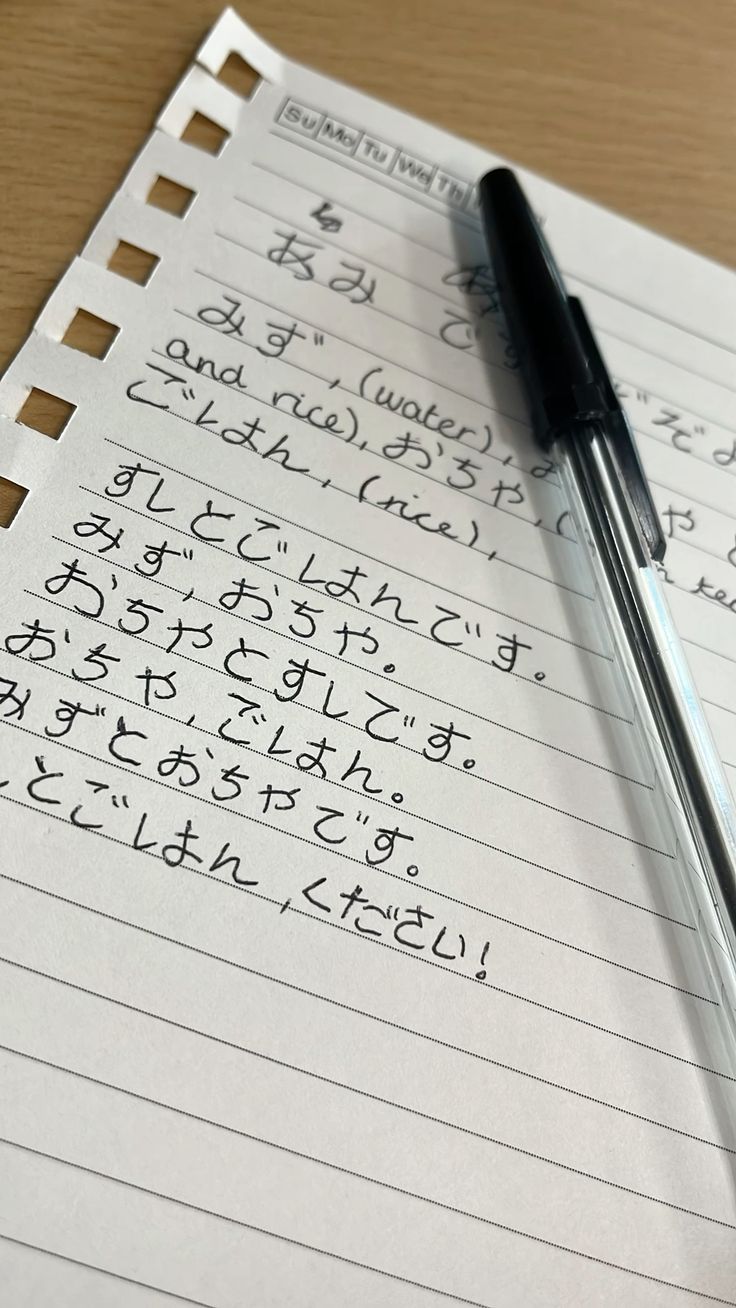 Su Mo Tu We Th
あみ
みず, (water),
and rice), おちゃ,
ごはん, (rice),
すしとごはんです。
みず, おちゃ。
おちゃとすしです。
おちゃ, ごはん。
みずとおちゃです。
とごはん, ください!